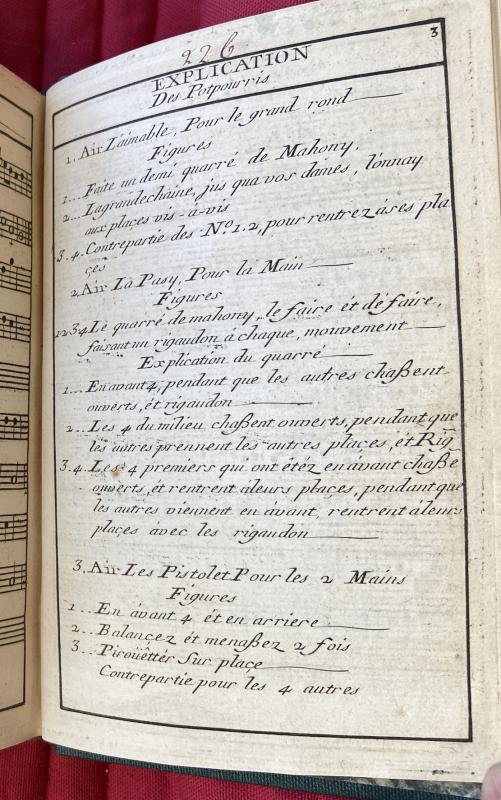 226
3
EXPLICATION
Des Potpourris
1, Air L'aimable, Pour le grand rond
Figures
1... Faite un demi quarré de Mahony,
2... Lagrandechaine, jus qua vos dames, lónnay
aux places vis-à-vis
3.4. Contrepartie des No. 1.2, pour rentrez áses pla
çes
2, Air Là Pasy, Pour là Main
Figures
1234 Le quarré de mahony, le faire ét dé faire,
faisant un rigaudon á chaque, mouvement
Explication du quarré
1... En avant 4, pendant que les autres chaßent
ouverts, ét rigaudon
2... Les 4 du milieu chaßent ouverts, pendant que
les autres prennent les autres places, ét Rig
3.4. Les 4 premiers qui ont étéz en ávant chaße
ouverts, ét rentrent áleurs plaçes, pendant que
les autres viennent en ávant, rentrent áleurs
plaçes ávec les rigaudon
3, Air Les Pistolet Pour les 2 Mains
Figures
1... En ávant 4 ét en arriere
2... Balançez ét menaßez 2 fois
3... Piroüéttér Sur plaçe
Contrepartie pour les 4 autres